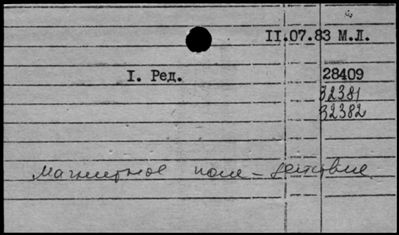 II.07.83 М.Л.
I. Ред. 28409
32381
32382
магнитное поле - действие